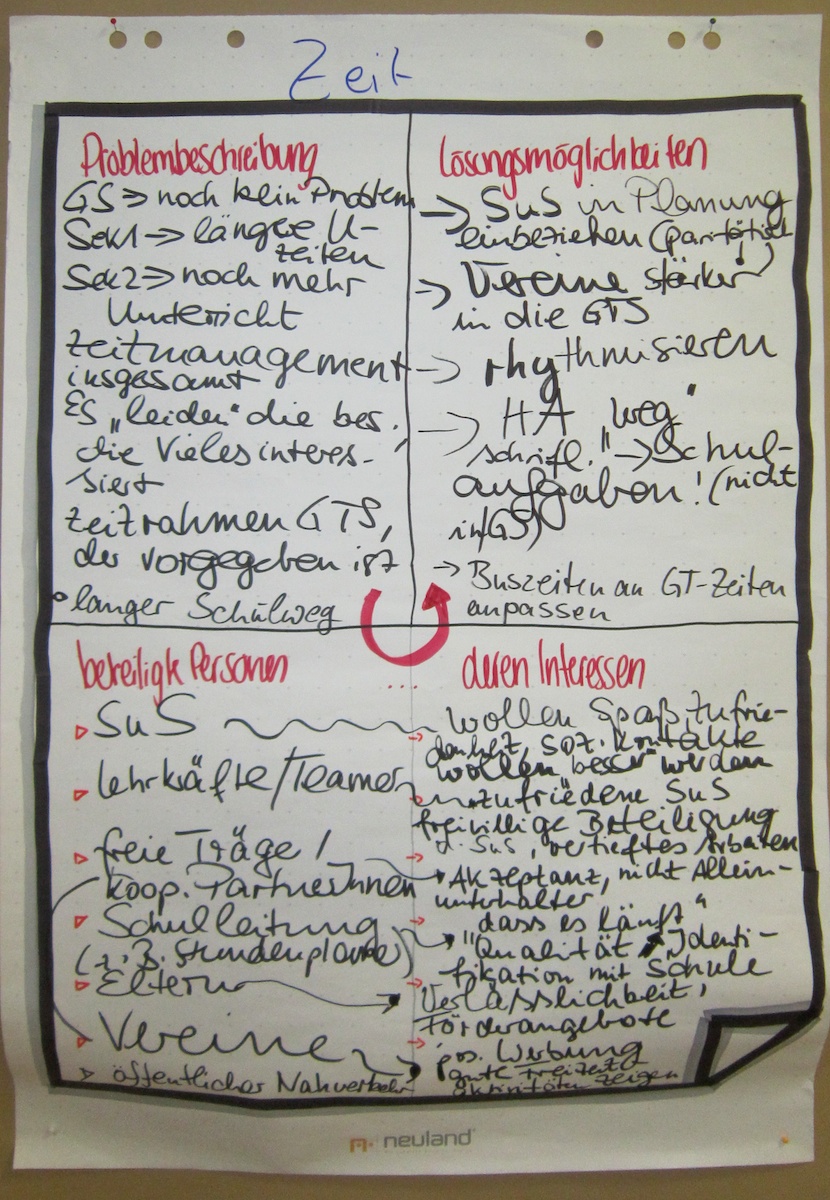 Zeit
Problembeschreibung
GS => noch kein Problem
Sek1 => längere U-
zeiten
Sek2 => noch mehr
Unterricht
Zeitmanagement
insgesamt
ES „leiden" die bes.
die Vieles interes-
siert
Zeitrahmen GTS,
der vorgegeben ist
• langer Schulweg
Lösungsmöglichkeiten
-> SuS in Planung
einbeziehen (paritätisch
-> Vereine stärker
in die GTS
-> rhythmisieren
-> HA „weg"
schriftl. -> Schul-
aufgaben! (nicht
in GS)
-> Buszeiten an GT-Zeiten
anpassen
beteiligte Personen
SuS
Lehrkräfte/Teamer
freie Träge /
koop. PartnerInnen
Schulleitung
(z.B. Stundenplaner)
Eltern
Vereine
öffentlicher Nahverkehr
...
deren Interessen
wollen Spaß, Zufrie-
denheit, soz. Kontakte
wollen besser werden
zufriedene SuS
freiwillige Beteiligung
d. SuS, vertieftes Arbeiten
Akzeptanz, nicht Allein-
unterhalter
„dass es läuft"
Qualität, Identi-
fikation mit Schule
Verlässlichkeit,
Förderangebote
pos. Werbung
gute Freizeit-
aktivitäten zeigen
neuland